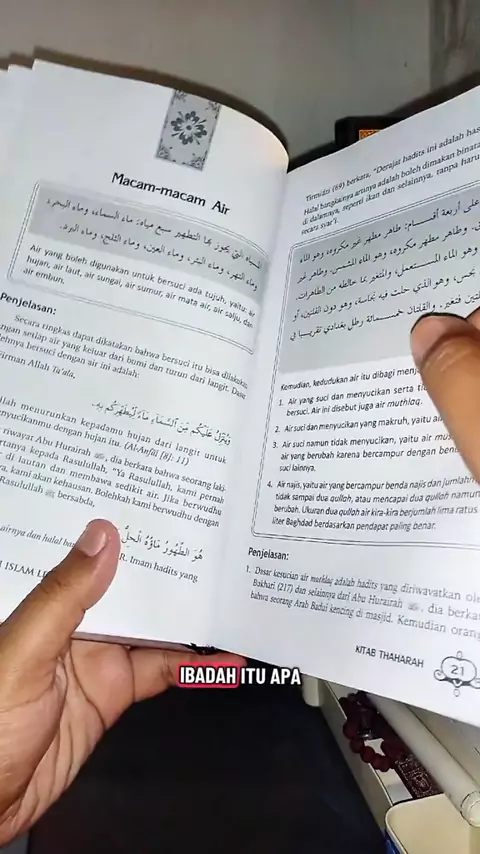 Macam-macam Air
المياه التي يجوز بها التطهير سبع مياه: ماء السماء، وماء البحر،
وماء النهر، وماء البئر، وماء العين، وماء الثلج، وماء البرد.
Air yang boleh digunakan untuk bersuci ada tujuh, yaitu: air
hujan, air laut, air sungai, air sumur, air mata air, air salju, dan
air embun.
Penjelasan:
Secara ringkas dapat dikatakan bahwa bersuci itu bisa dilakukan
ngan setiap air yang keluar dari bumi dan turun dari langit. Dasar
lehnya bersuci dengan air ini adalah:
Firman Allah Ta'ala,
وَيُنَزِّلُ عَلَيْكُم مِّنَ السَّمَاءِ مَاءً لِّيُطَهِّرَكُم بِهِ
llah menurunkan kepadamu hujan dari langit untuk
enyucikanmu dengan hujan itu. (Al-Anfâl [8]: 11)
riwayat Abu Hurairah, dia berkata bahwa seorang laki-
rtanya kepada Rasulullah, "Ya Rasulullah, kami pernah
di lautan dan membawa sedikit air. Jika berwudhu
a, kami akan kehausan. Bolehkah kami berwudhu dengan
Rasulullah ﷺ bersabda,
هُوَ الطَّهُورُ مَاؤُهُ الْحِلُّ
airnya dan halal
R. Imam hadits yang
ISLAM
Tirmidzi (69) berkata, "Derajat hadits ini adalah has
Halal bangkainya artinya adalah boleh dimakan binata
di dalamnya, seperti ikan dan selainnya, tanpa haru
secara syar'i.
على أربعة أقسام: طاهر مطهر غير مكروه، وهو الماء
وطاهر مطهر مكروه، وهو الماء المشمس، وطاهر غير
وهو الماء المستعمل، والمتغير بما خالطه من الطاهرات،
نجس، وهو الذي حلت فيه نجاسة، وهو دون القلتين، أو
فتغير، والقلتان خمسمائة رطل بغدادي تقريبا في
Kemudian, kedudukan air itu dibagi menj
1. Air yang suci dan menyucikan serta ti
bersuci. Air ini disebut juga air muthlaq.
2. Air suci dan menyucikan yang makruh, yaitu air
3. Air suci namun tidak menyucikan, yaitu air mus
air yang berubah karena bercampur dengan ben
suci lainnya.
4. Air najis, yaitu air yang bercampur benda najis dan jumlahn
tidak sampai dua qulloh, atau mencapai dua qulloh namun
berubah. Ukuran dua qulloh air kira-kira berjumlah lima ratus
liter Baghdad berdasarkan pendapat paling benar.
Penjelasan:
1. Dasar kesucian air muthlaq adalah hadits yang diriwayatkan ole
Bukhari (217) dan selainnya dari Abu Hurairah, dia berka
bahwa seorang Arab Badui kencing di masjid. Kemudian orang
KITAB THAHARAH
21
IBADAH ITU APA